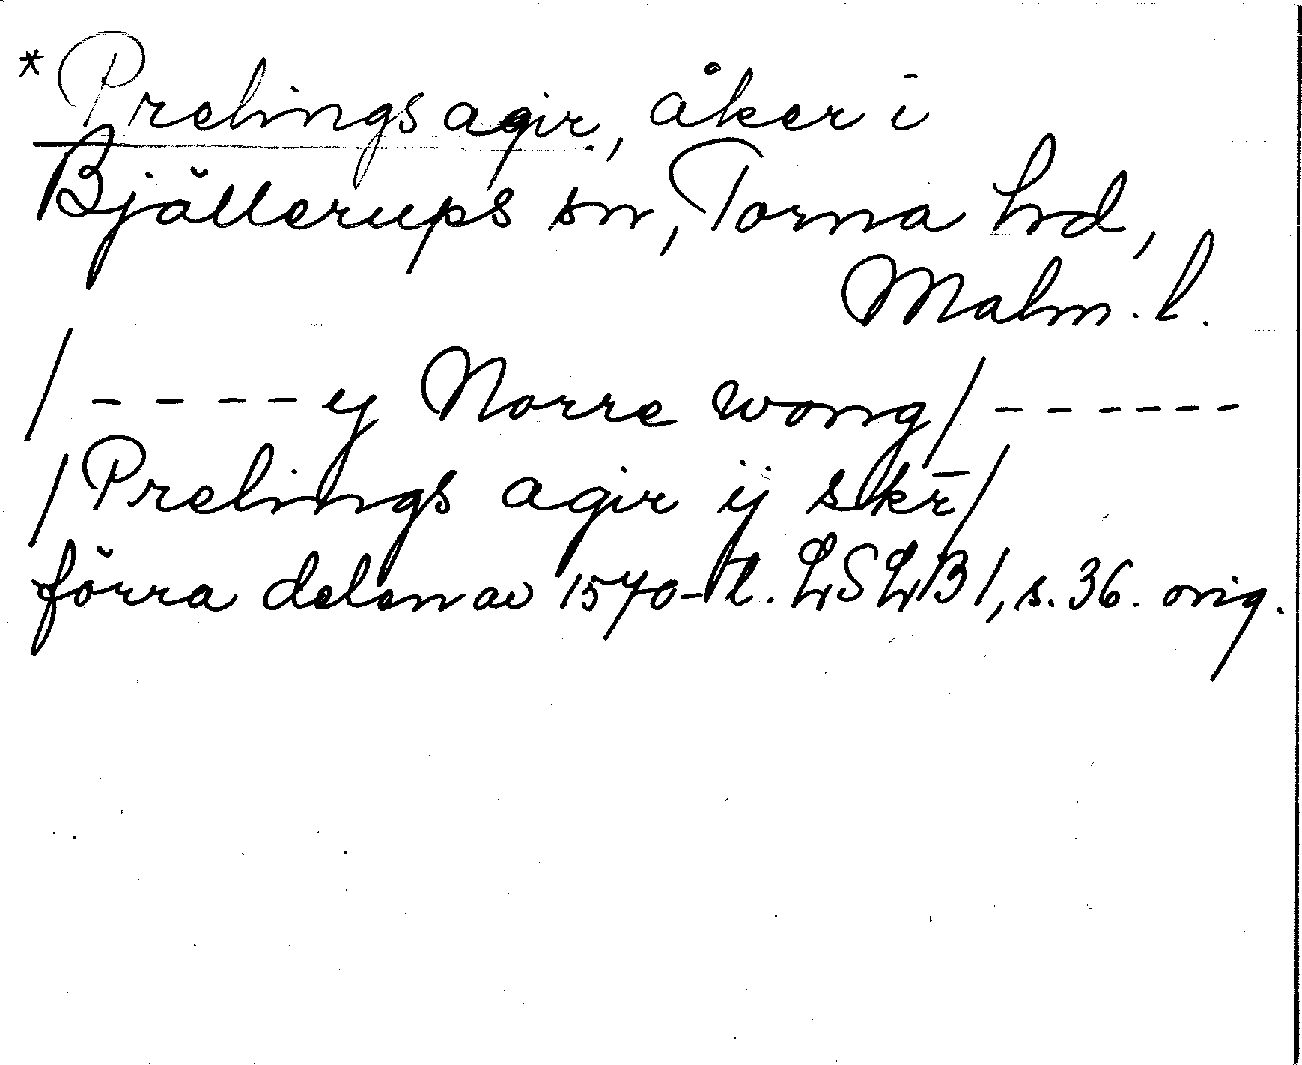 * Prelings agir, åker i
Bjällerups sn, Torna hd,
Malm. l.
/ - - - - ij Norre wong / - - - - - -
/ Prelings agir ij skr̄ /
förra delen av 1570-t. LSLB 1, s. 36. orig.